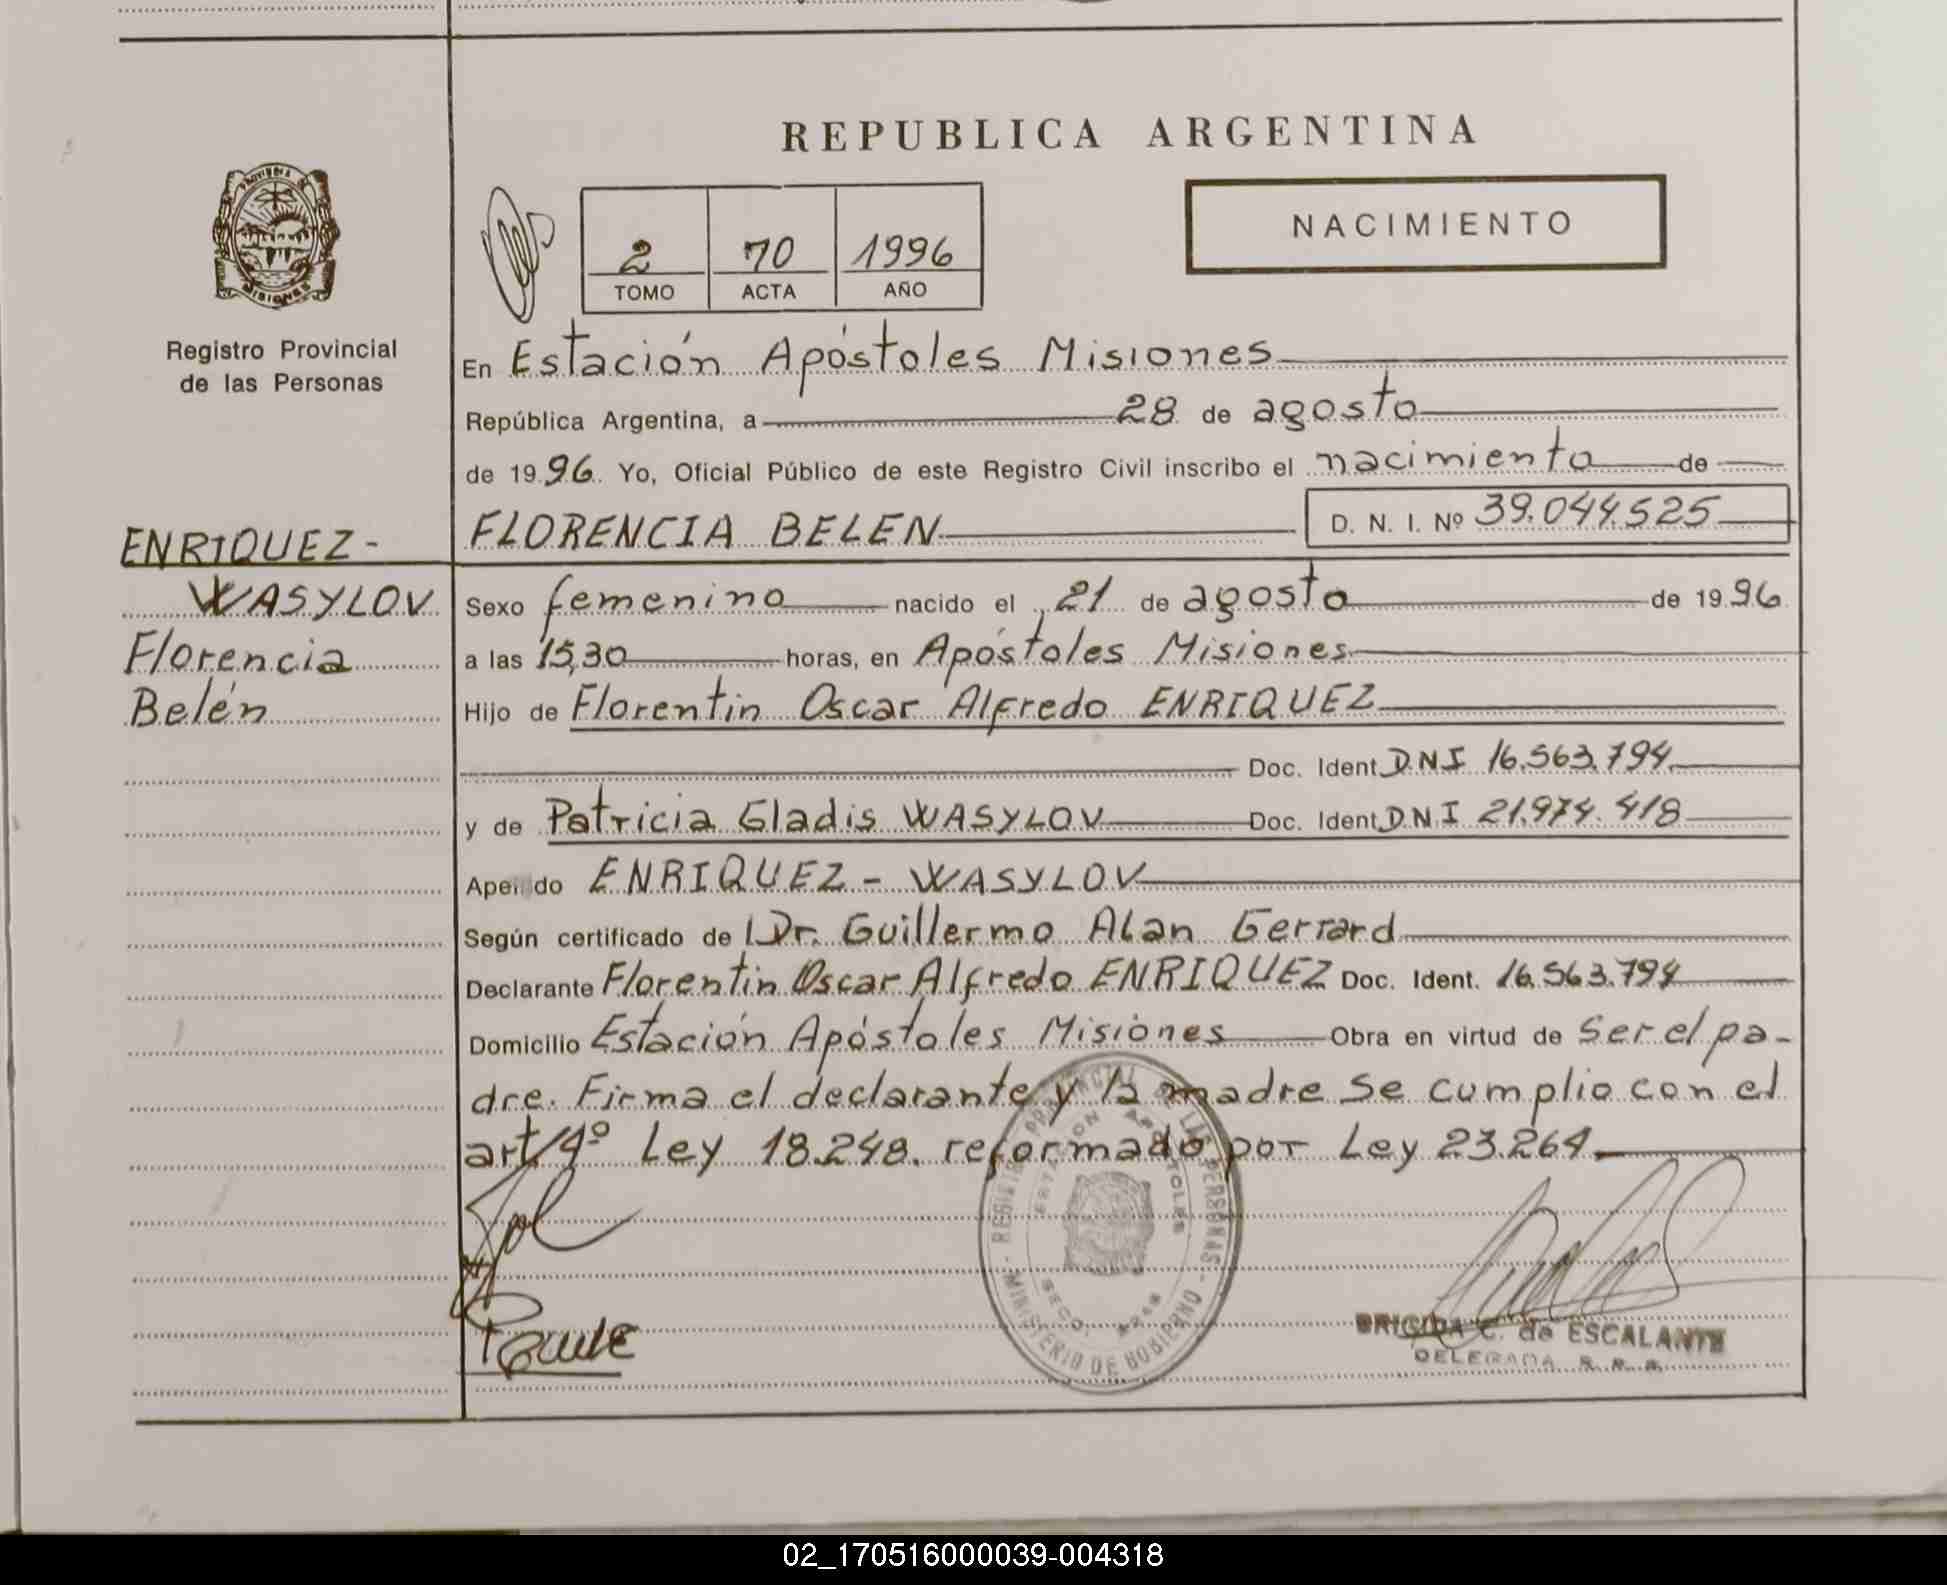 REPUBLICA ARGENTINA
NACIMIENTO
2 70 1996
TOMO ACTA AÑO
PROVINCIA DE MISIONES
Registro Provincial
de las Personas
En Estación Apóstoles Misiones
República Argentina, a 28 de agosto
de 1996. Yo, Oficial Público de este Registro Civil inscribo el nacimiento de
FLORENCIA BELEN D. N. I. Nº 39.044.525
ENRIQUEZ-
WASYLOV
Florencia
Belén
Sexo femenino nacido el 21 de agosto de 1996
a las 15,30 horas, en Apóstoles Misiones
Hijo de Florentin Oscar Alfredo ENRIQUEZ
Doc. Ident. DNI 16.563.794
y de Patricia Gladis WASYLOV Doc. Ident. DNI 21.974.418
Apellido ENRIQUEZ - WASYLOV
Según certificado de Dr. Guillermo Alan Gerrard
Declarante Florentin Oscar Alfredo ENRIQUEZ Doc. Ident. 16.563.794
Domicilio Estación Apóstoles Misiones Obra en virtud de Ser el pa-
dre. Firma el declarante y la madre Se cumplio con el
art/4º Ley 18.248. reformado por Ley 23.264.
REGISTRO PROVINCIAL DE LAS PERSONAS - MINISTERIO DE GOBIERNO -
ESTACION APOSTOLES
BRIGIDA C. de ESCALANTE
DELEGADA
02_170516000039-004318